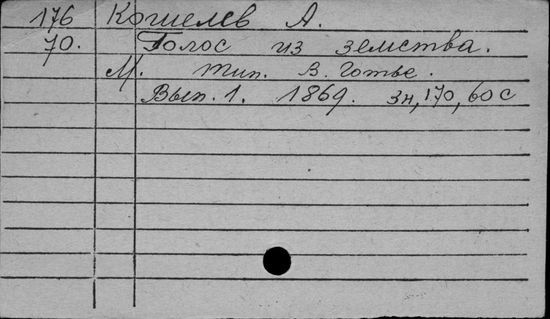 176 Кошелев А.
70. Голос из земства.
М. тип. В. Готье.
Вып. 1. 1869. 3н, 170, 60 с